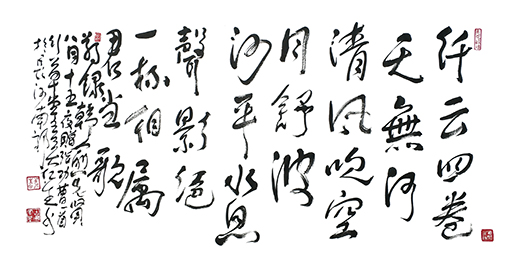 纤云四卷
天無河
清風吹空
月舒波
沙平水息
聲影絕
一杯相屬
君當歌
錄韓愈先賢
八月十五夜贈張功曹一首